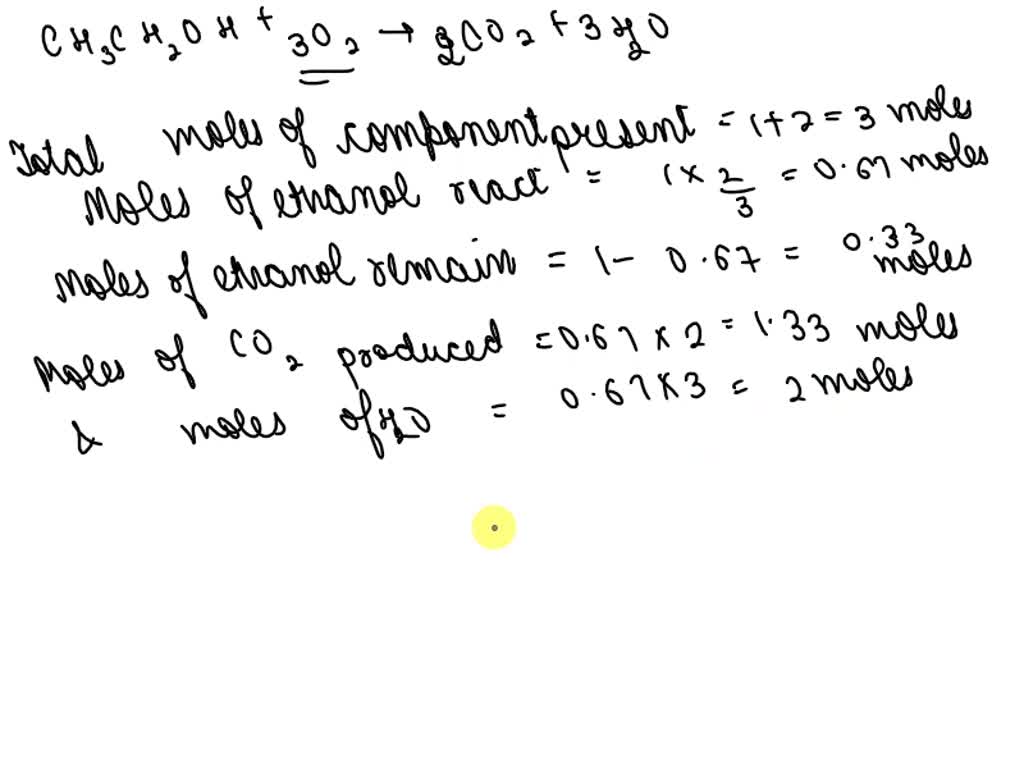 CH₃CH₂OH + 3O₂ → 2CO₂ + 3H₂O
Total moles of component present = 1+2 = 3 moles
Moles of ethanol react = 1 × 2/3 = 0.67 moles
Moles of ethanol remain = 1 - 0.67 = 0.33 moles
Moles of CO₂ produced = 0.67 × 2 = 1.33 moles
& moles of H₂O = 0.67 × 3 = 2 moles